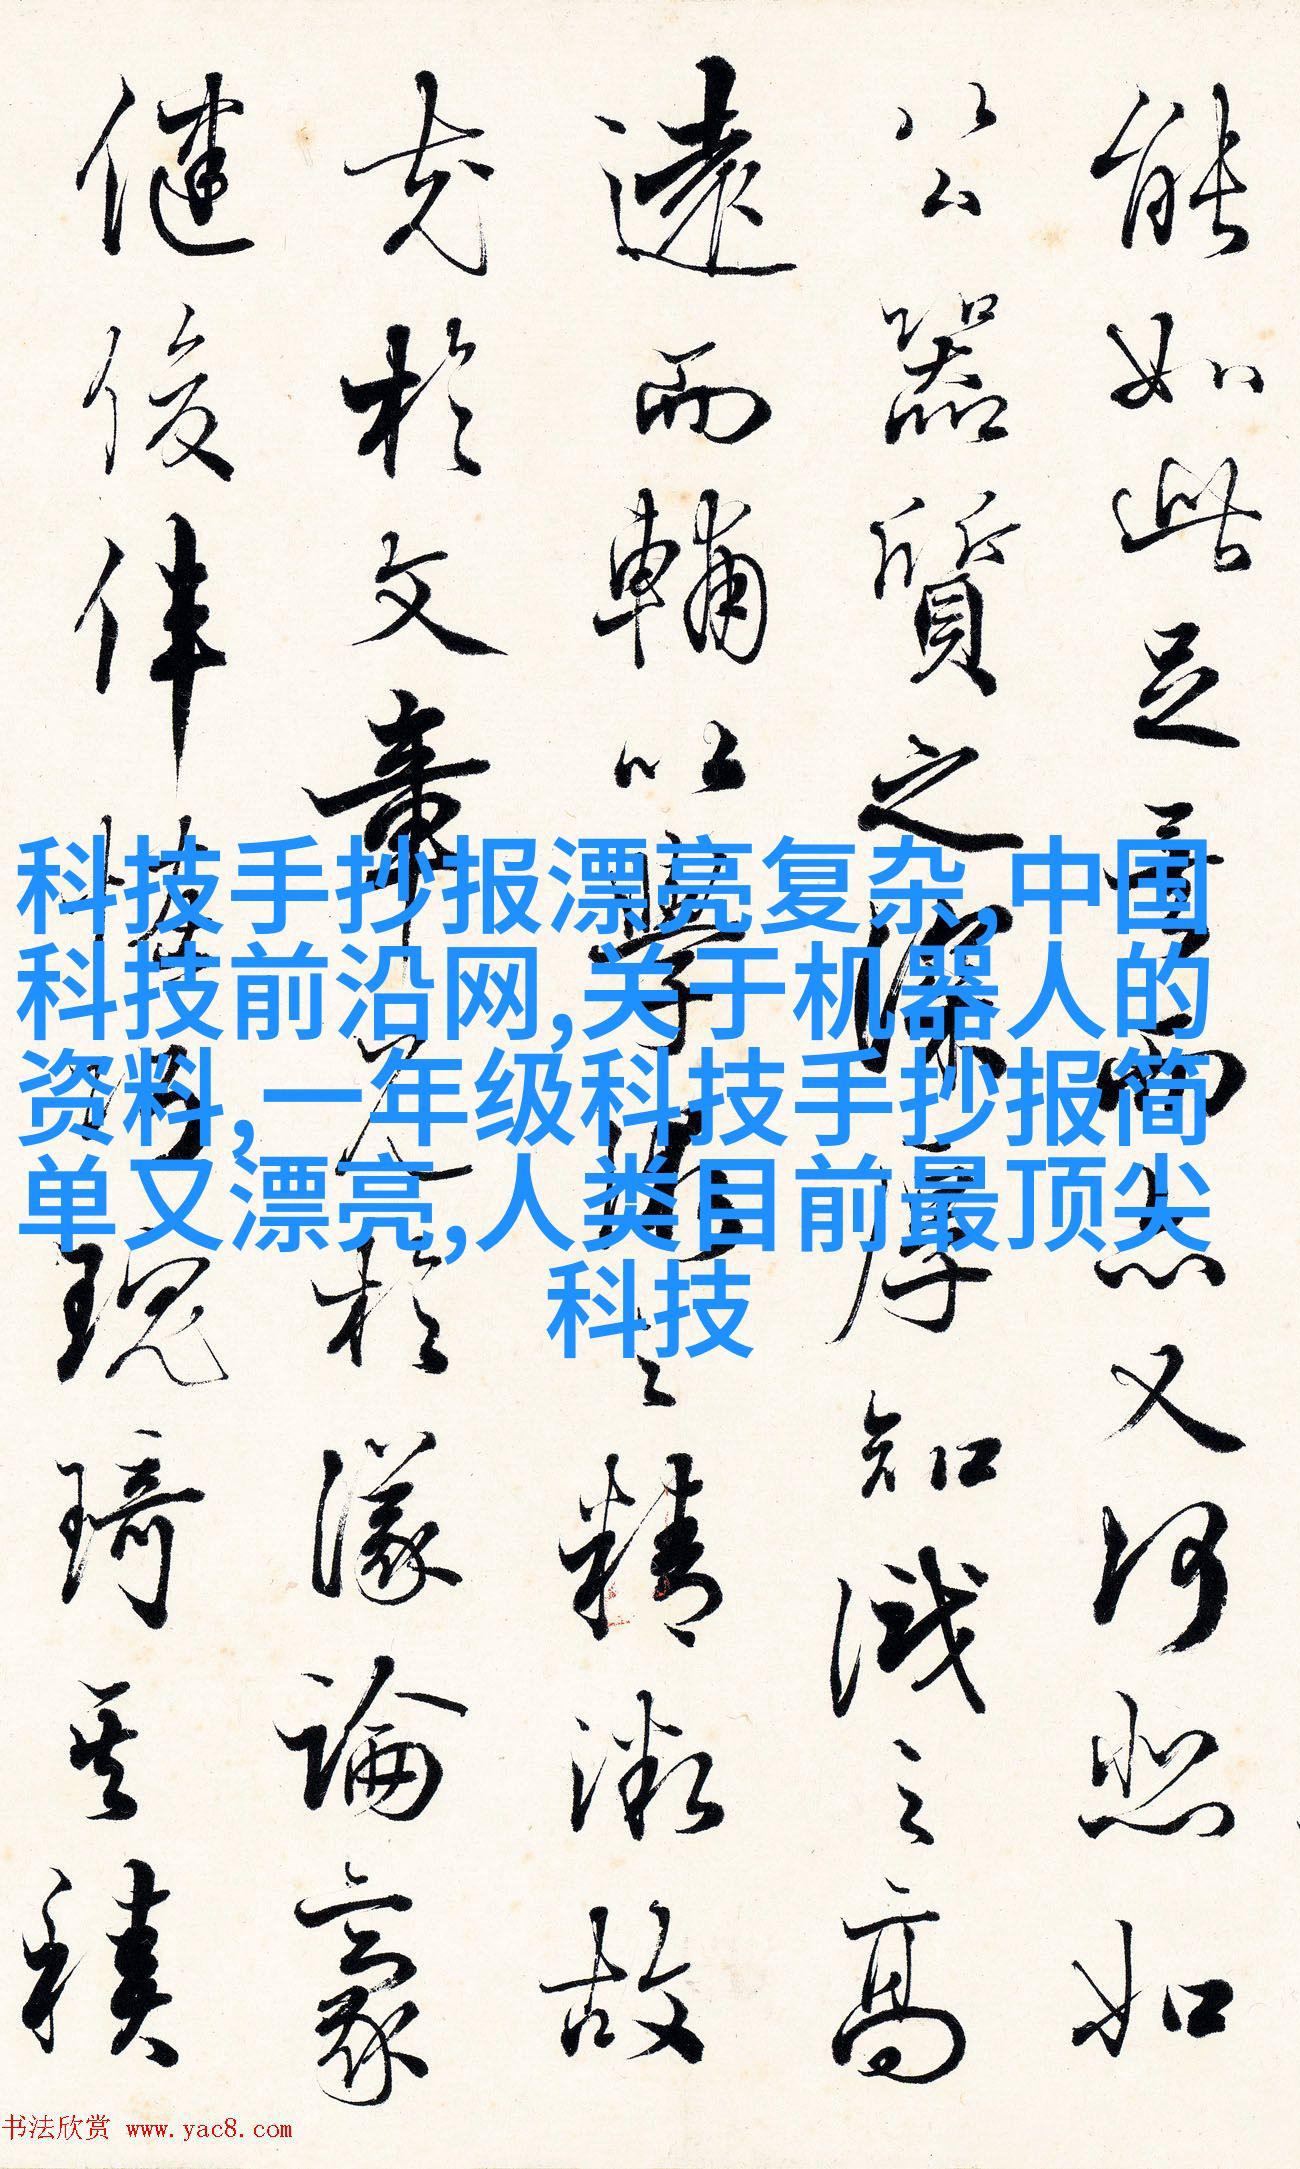 能如此足矣而亦又何悲如
公器質之深厚知識之高
遠而輔以學術之精微故
充於文章見於議論豪
健俊偉怪巧瑰琦其積
科技手抄报漂亮复杂,中国
科技前沿网,关于机器人的
资料,一年级科技手抄报简
单又漂亮,人类目前最顶尖
科技
书法欣赏 www.yac8.com